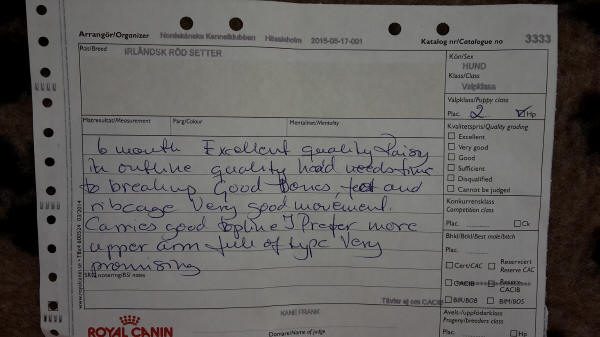 Arrangör/Organizer Nordskånska Kennelklubben Hässleholm 2015-05-17-001 Katalog nr/Catalogue no 3333
Ras/Breed IRLÄNDSK RÖD SETTER
Kön/Sex
HUND
Klass/Class
Valpklass
Valpklass/Puppy class
Plac. 2 Hp
Mätresultat/Measurement Färg/Colour Mentalitet/Mentality
Kvalitetspris/Quality grading
Excellent
Very good
Good
Sufficient
Disqualified
Cannot be judged
6 month Excellent quality
in outline quality head needs time
to breaking Good bones, feet and
ribcage Very good movement.
Carries good topline I Prefer more
upper arm full of type Very
promising
Konkurrensklass
Competition class
Plac. Ck
Bhkl/Btkl/Best male/bitch
Plac.
Cert/CAC Reservcert
Reserve CAC
CACIB CACIB
BIR/BOB BIM/BOS
notering/BS/ notes
Tävlar ej om CACIB
Avels-/uppfödarklass
Progeny/breeders class
Plac. Hp
KANE FRANK
Domare/Name of judge
ROYAL CANIN
www.royalcanin.se • Tibé 600524 03/2014